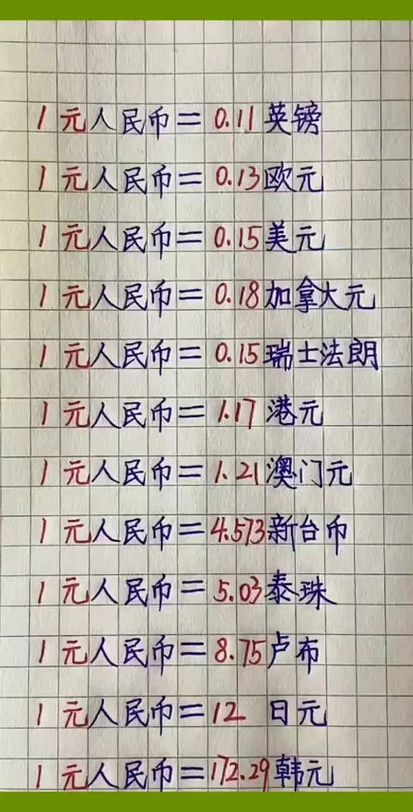 1元人民币=0.11英镑
1元人民币=0.13欧元
1元人民币=0.15美元
1元人民币=0.18加拿大元
1元人民币=0.15瑞士法朗
1元人民币=1.17港元
1元人民币=1.21澳门元
1元人民币=4.573新台币
1元人民币=5.03泰珠
1元人民币=8.75卢布
1元人民币=12 日元
1元人民币=172.29韩元